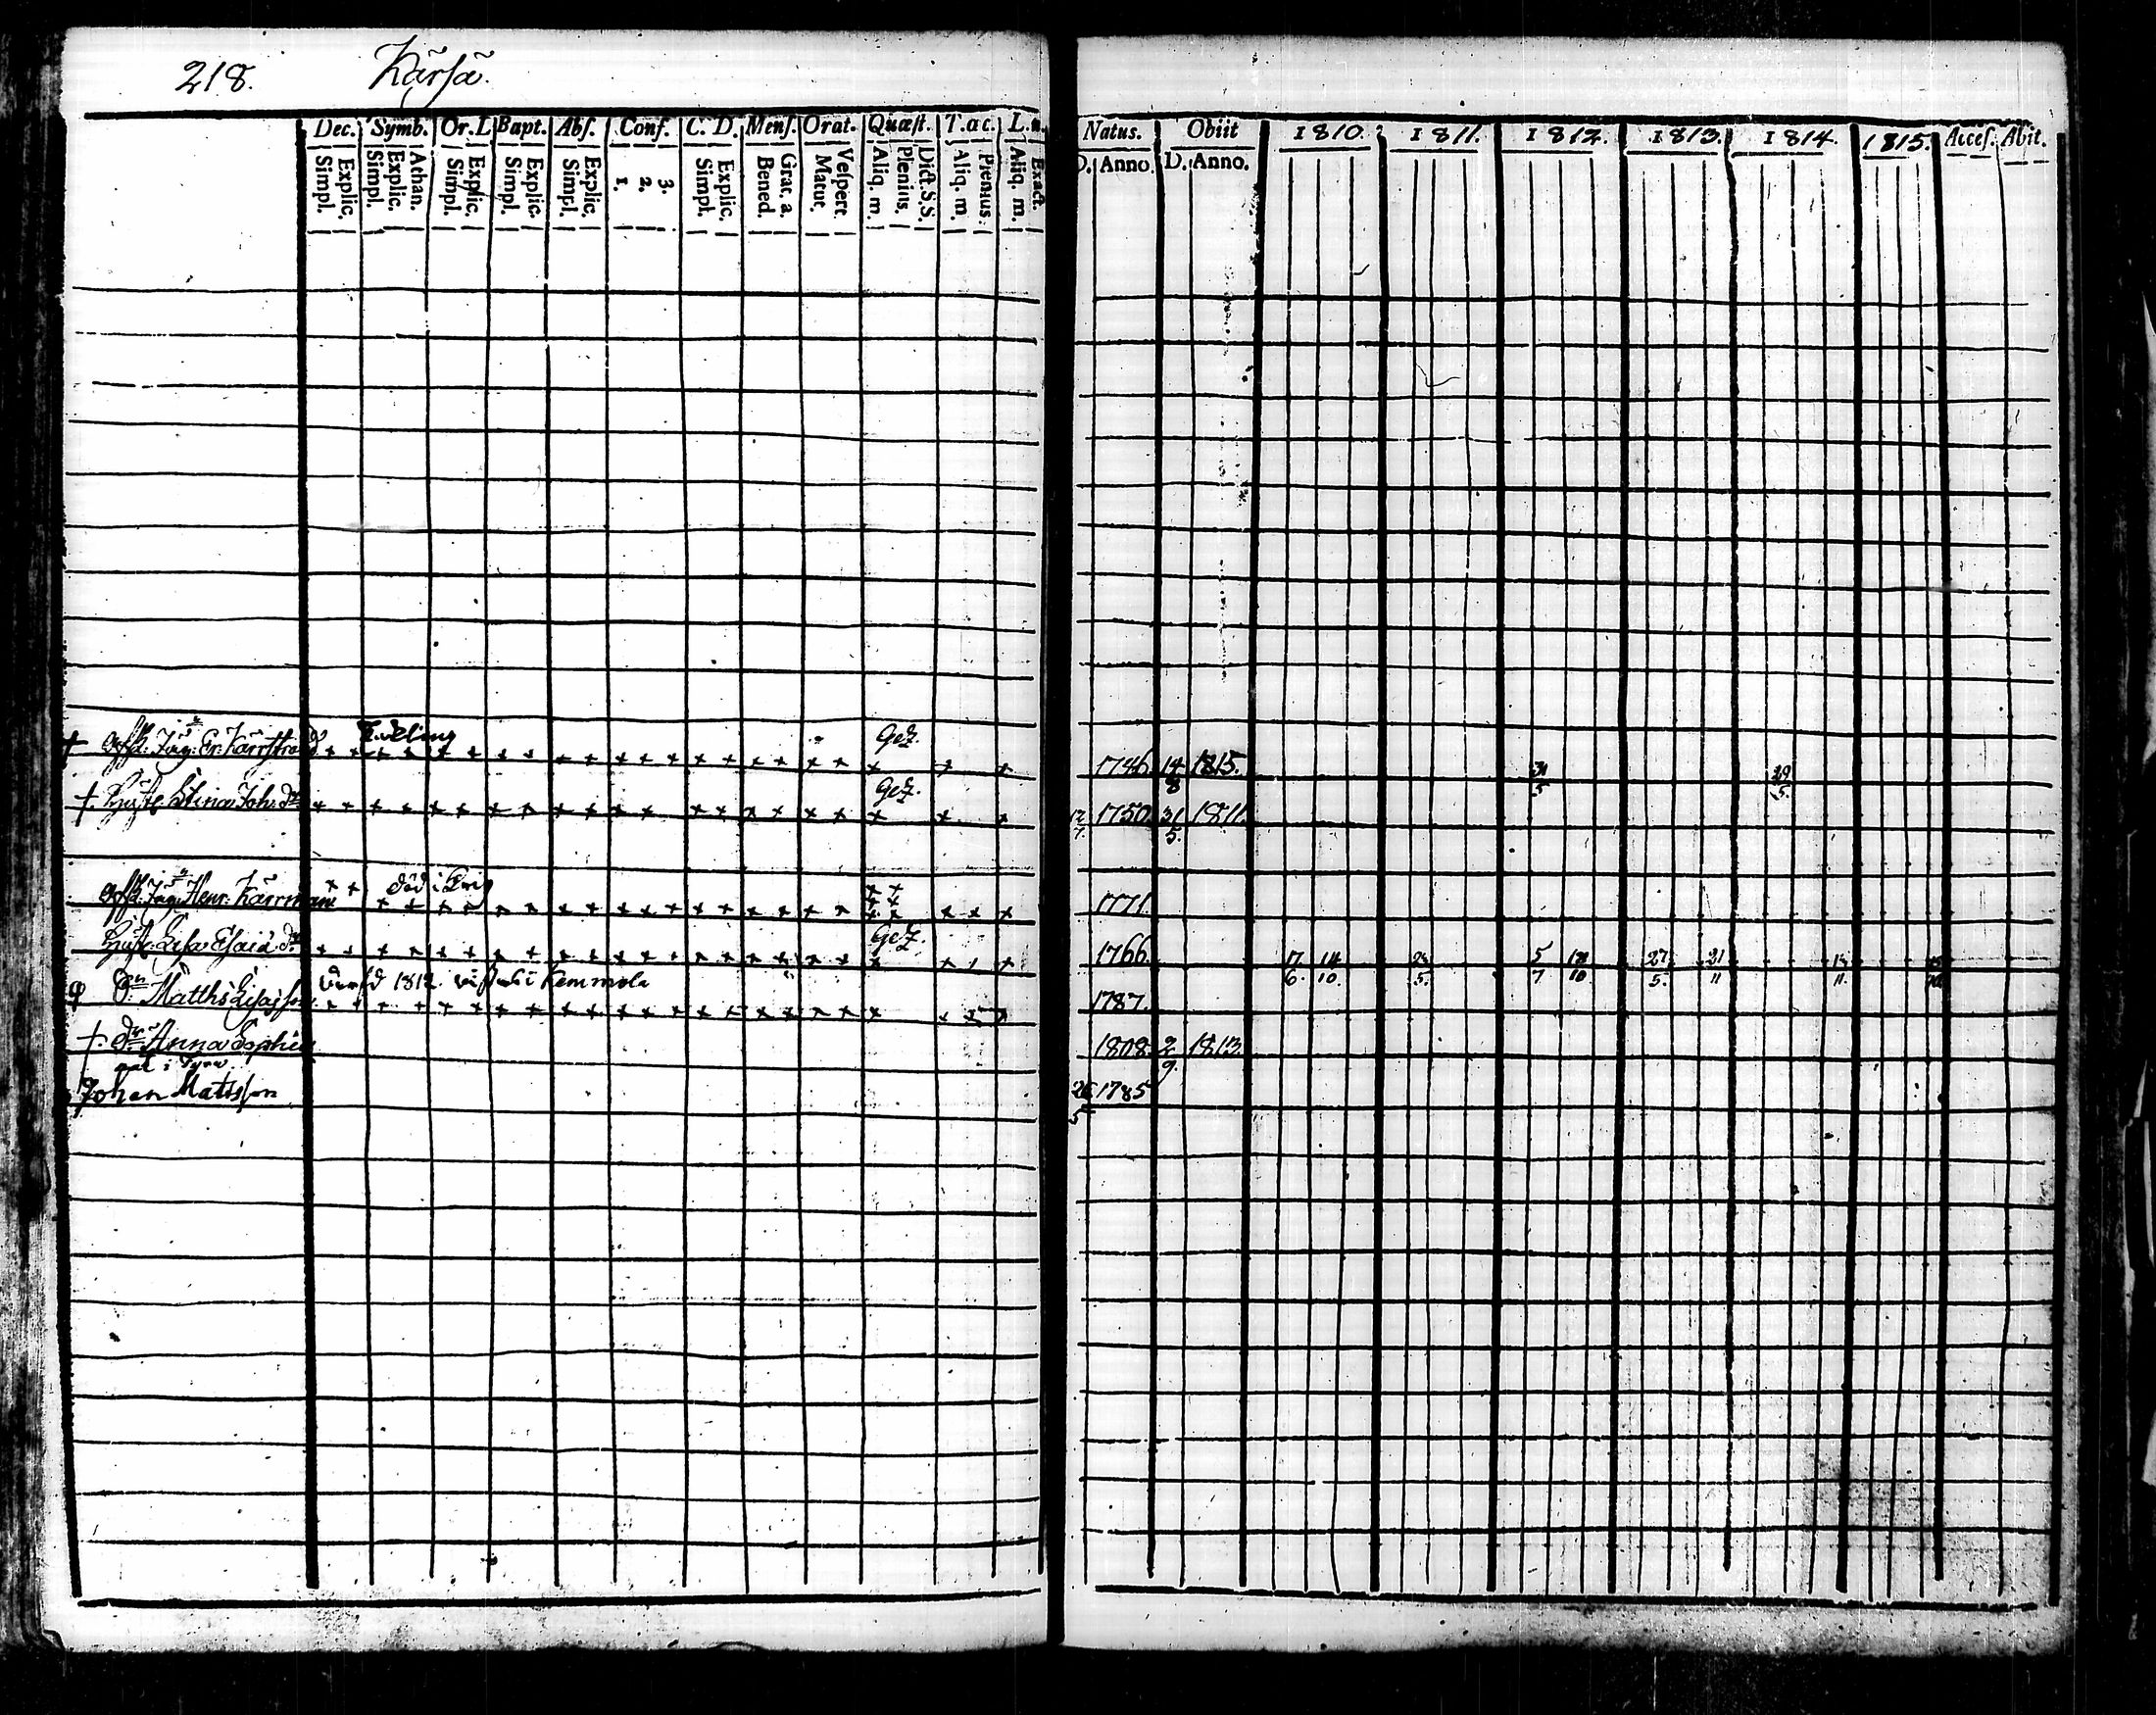 218. Kärsä.
Dec. Symb. Or. L Bapt. Abſ. Conf. C. D. Menſ. Orat. Quæſt. T. a c. L. a.
Simpl. Explic. Simpl. Explic. Athan. Simpl. Explic. Simpl. Explic. Simpl. Explic. 1. 2. 3. Simpl. Explic. Bened. Grat. a. Matut. Veſpert. Aliq. m. Plenius. Dict. S.S. Aliq. m. Plenius. Aliq. m. Exact.
Natus. Obiit 1810. 1811. 1812. 1813. 1814. 1815. Acceſ. Abit.
D. Anno. D. Anno.
† Er. Kärrstrand x x x x x x x x x x x x x x x x x x x x x x x Gez. 1746. 14/8 1815. 31/5 29/5.
† Hust. Stina Joh. dr x x x x x x x x x x x x x x x x x x x x x x Gez. 12/7. 1750. 31/5. 1811.
Henr. Kärrman död i x x x x x x x x x x x x x x x x x x x x x x x 1771.
Hust. Lisa Esaiæ dr x x x x x x x x x x x x x x x x x x x x x x Gez. 1766. 17/6. 14/10. 5/7 18/10. 27/5. 21/11
1812 i Kemmola
Sn Matths x x x x x x x x x x x x x x x x x x x x x x x 1787.
†. dr Anna Sophia 1808. 2/9. 1813.
Johan Matsson 26/5 1785